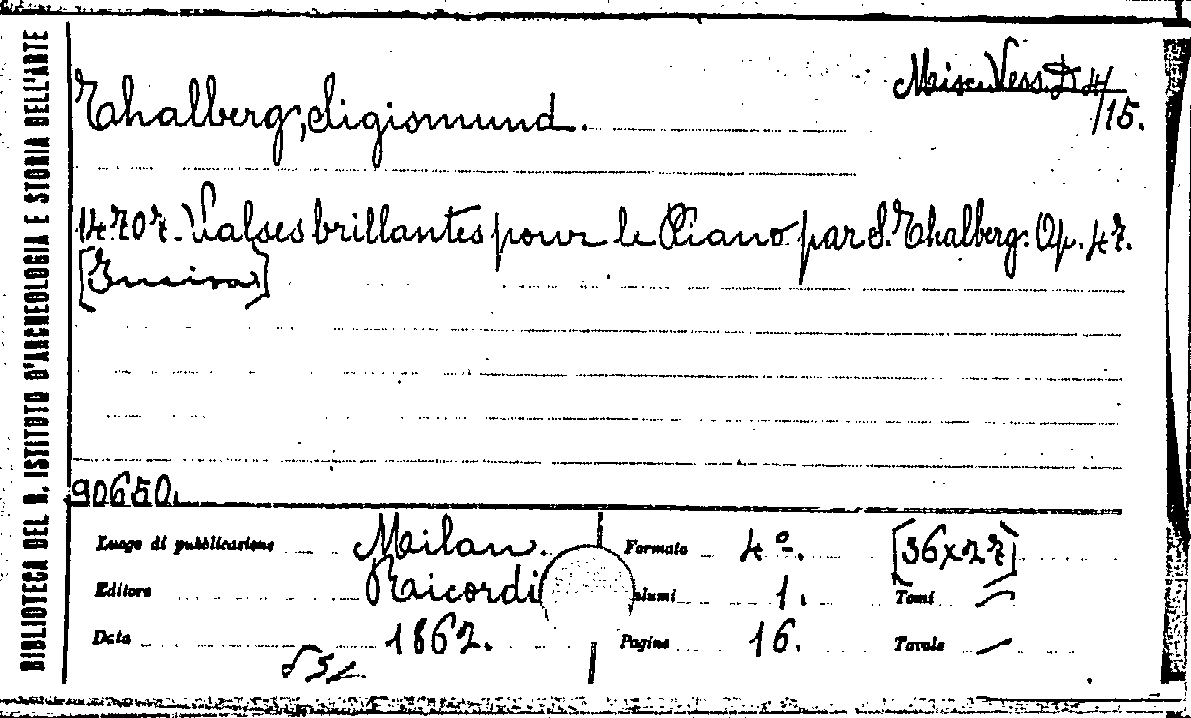 BIBLIOTECA DEL R. ISTITUTO D'ARCHEOLOGIA E STORIA DELL'ARTE
Misc. Vess. D 4/15.
Thalberg, Sigismund.
14707. Valses brillantes pour le Piano par S. Thalberg. Op. 47.
[Musica]
90650.
Luogo di pubblicazione Milan. Formato 4º. [36x27]
Editore Ricordi Volumi 1. Tomi —
Data 1862. Pagine 16. Tavole —